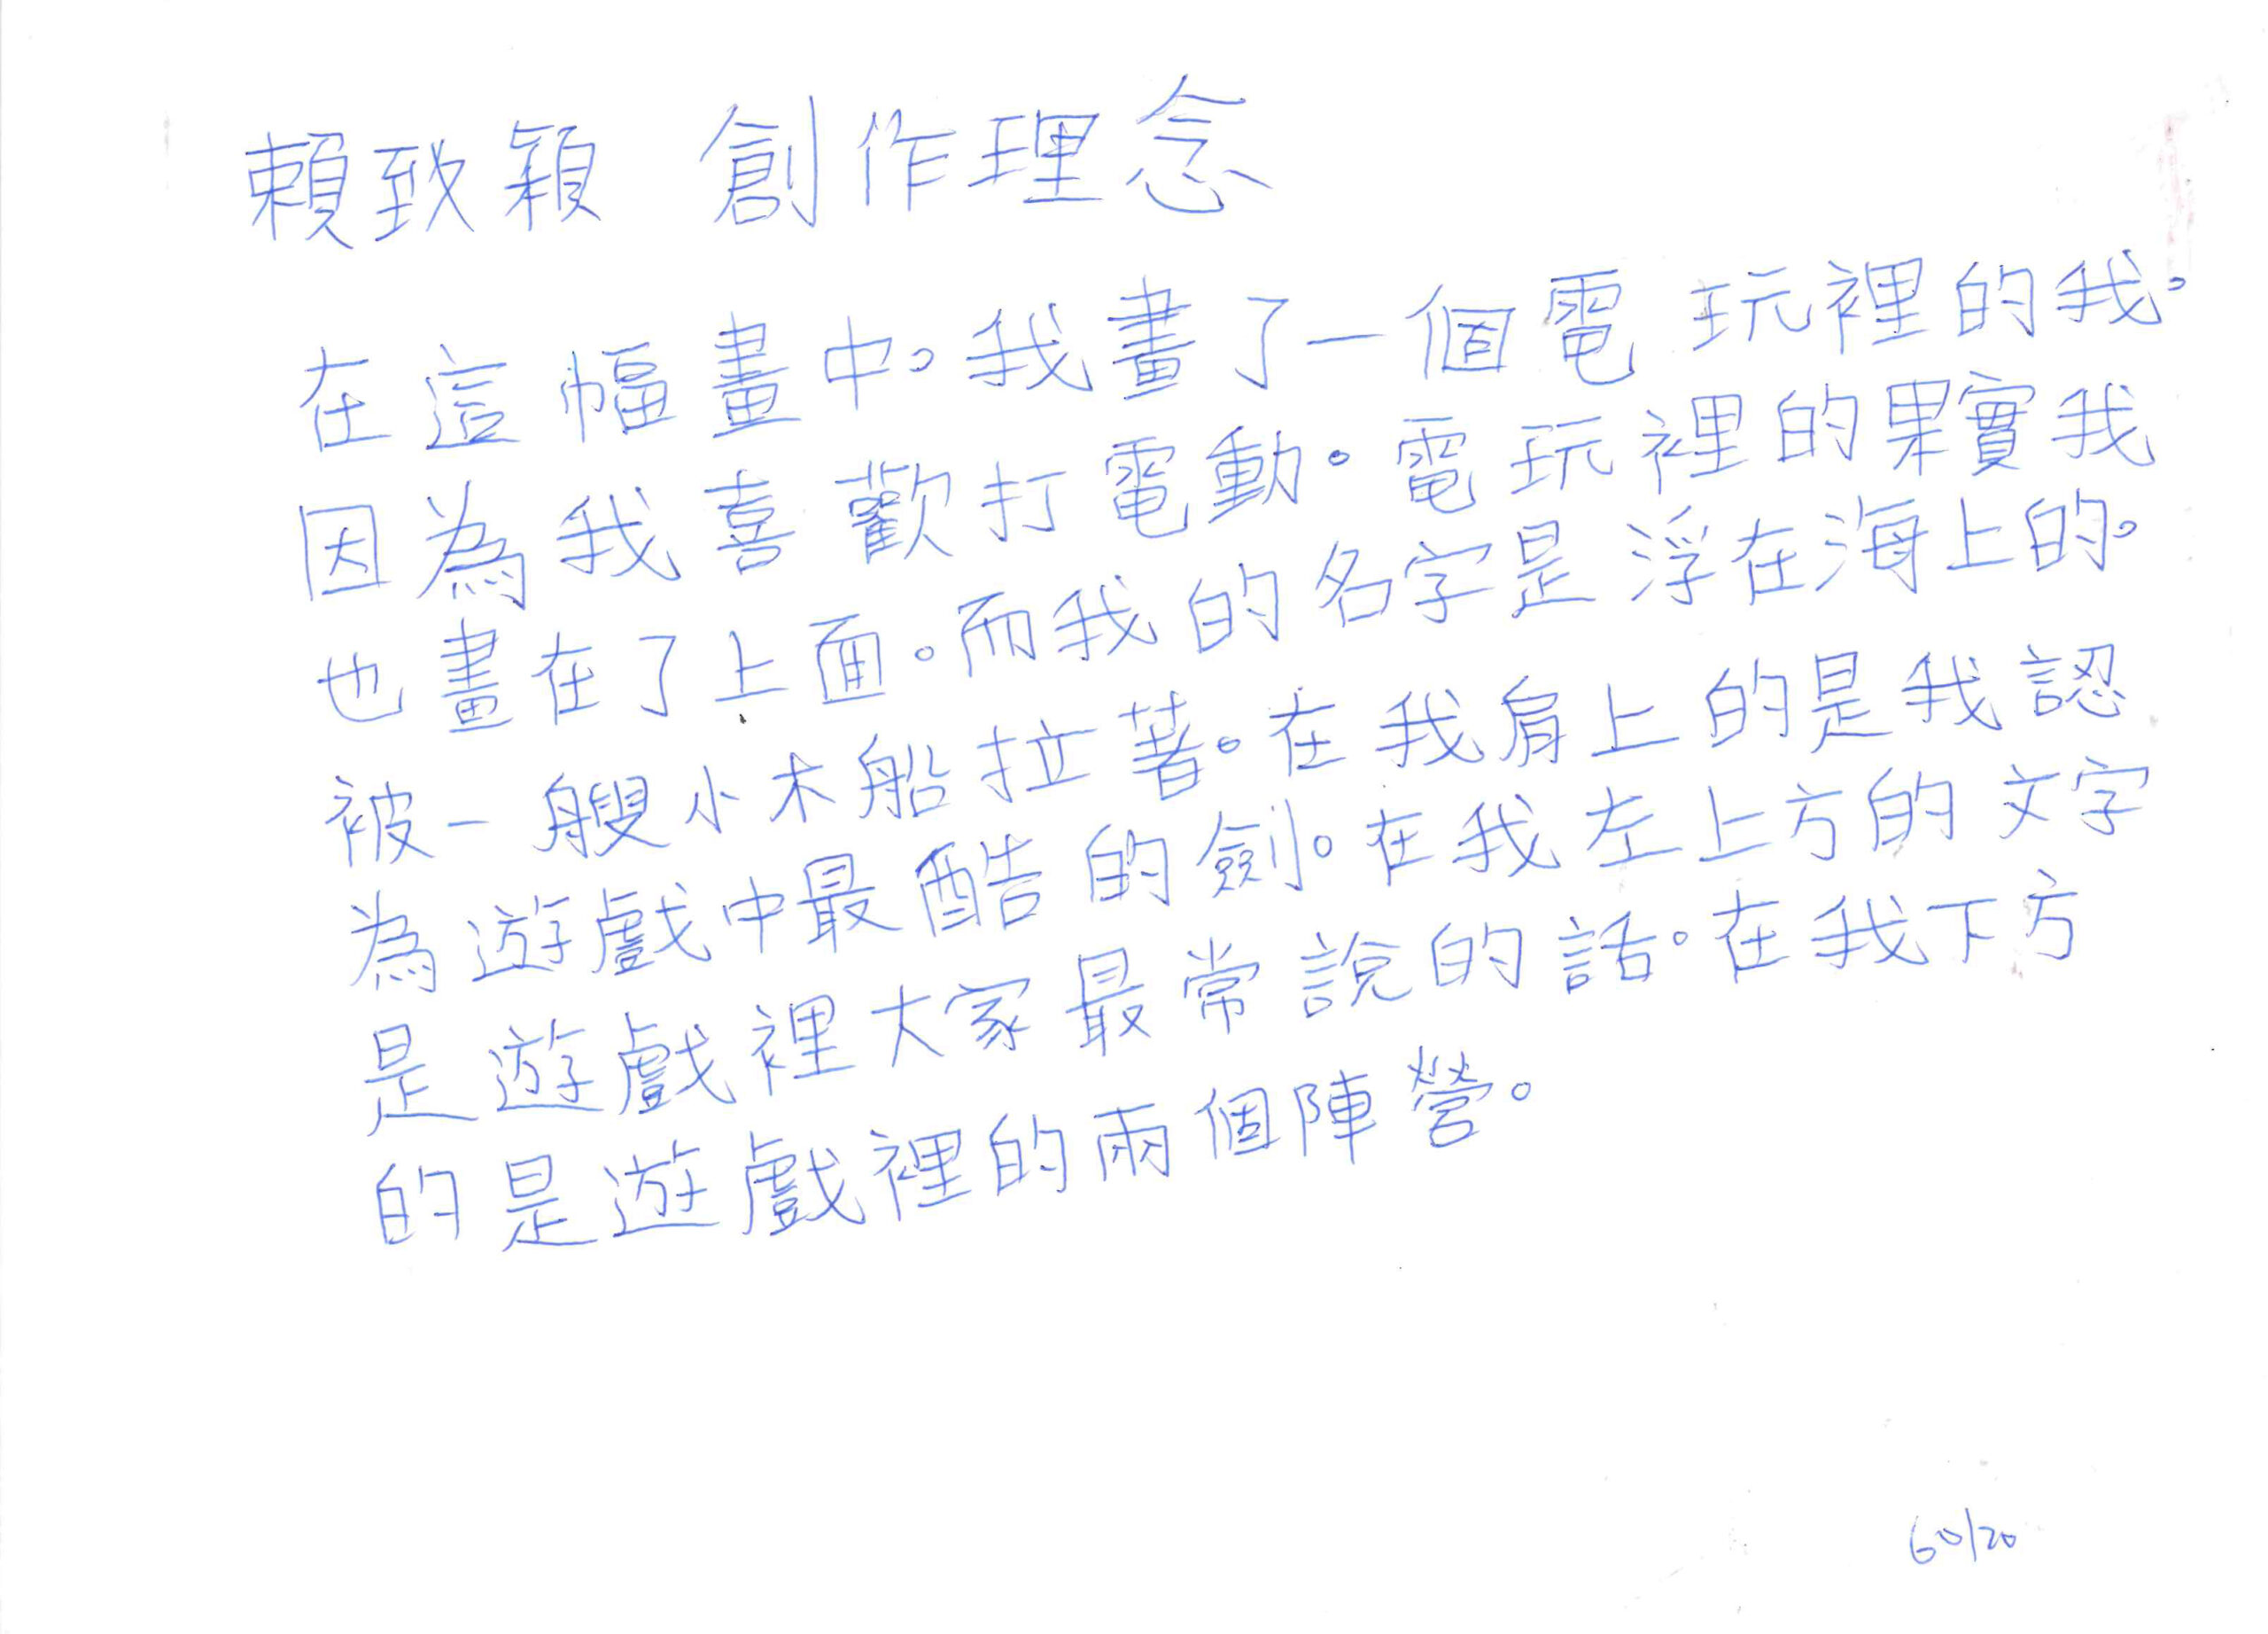 賴致穎 創作理念
在這幅畫中。我畫了一個電玩裡的我。
因為我喜歡打電動。電玩裡的果實我
也畫在了上面。而我的名字是浮在海上的。
被一艘小木船拉著。在我肩上的是我認
為遊戲中最酷的劍。在我左上方的文字
是遊戲裡大家最常說的話。在我下方
的是遊戲裡的兩個陣營。
60120